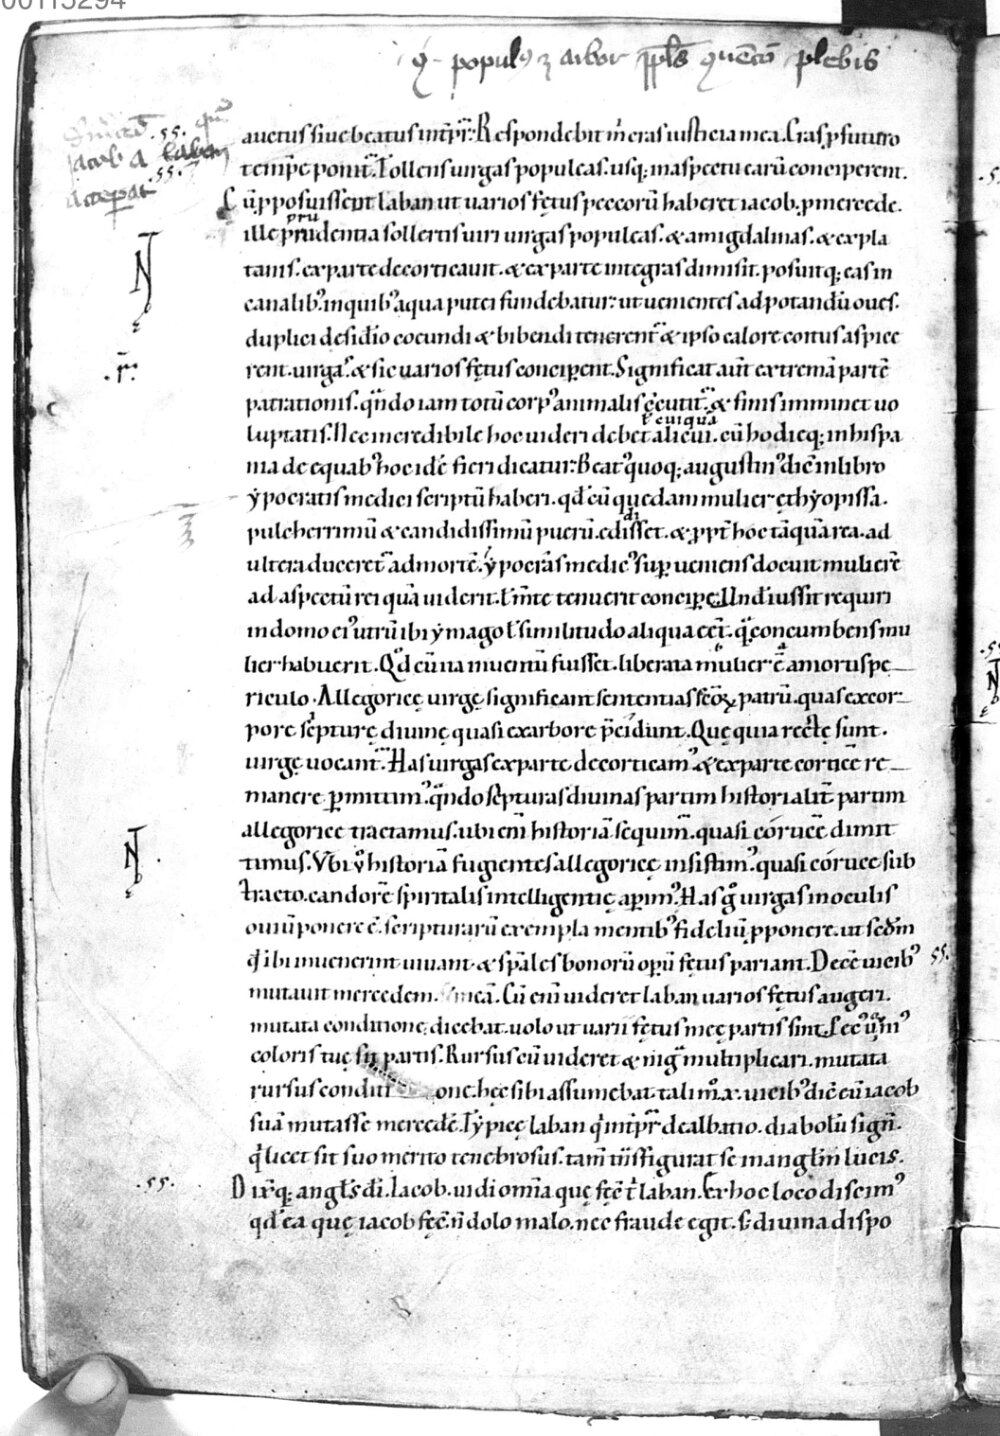 00115294
populꝰ ⁊ arbor ppl̄s plebis
.55.
Jacob a labam
acceperat
.55.
auctus siue beatus int̄pr̄. Respondebit m̄ cras iusticia mea. Cras, p futuro
temp̄e ponit̄. Tollens uirgas populeas. usq; in aspectu earū conciperent.
Cū p̱posuissent laban ut uarios fętus peccorū haberet iacob, p mercede.
pru
ille prudentia sollertis uiri uirgas populeas. & amigdalinas. & expla
tanis. ex parte decorticauit. & ex parte integras dimisit. posuitq; eas in
canalibꝰ. in quibꝰ aqua putei fundebatur: ut uenientes ad potandū oues.
duplici desid̄io coeundi & bibendi tenerent̄ & ipso calore coitus aspice
.r̄.
rent. uirgaſ. & sic uarios fętus concip̱ent. Significat aūt extremā partē
patrationis. qn̄do iam totū corpꝰ animalis c̨cutit̄. & finis imminet uo
ł cuiquā
luptatis. Nec incredibile hoc uideri debet alicui. cū hodieq; in hispa
nia de equabꝰ hoc idē fieri dicatur. Beatꝰ quoq; augustinꝰ dic̄ in libro
ypocratis medici scriptū haberi. qd̄ cū quędam mulier ęthyopissa.
di
pulcherrimū & candidissimū puerū. edisset. & p̱pt̄ hoc tāquā rea. ad
ulterad uceret̄ ad mortē. ypocrās medicꝰ sup̱ueniens docuit mulierē
ad aspectū rei quā uiderit. ł m̄te tenuerit concip̱e. Und̄ iussit requiri
in domo eiꝰ utrū ibi ymago ł similitudo aliqua eēt̄. quā concumbens mu
lier habuerit. Qd̄ cū ita inuentū fuisset. liberata mulier ē a mortis pe
riculo. Allegoricę uirgę significant sententias scōꝝ patrū. quas ex cor
pore sc̄pturę diuinę quasi ex arbore p̄cidunt. Quę quia rectę sunt.
uirgę uocant̄. Has uirgas ex parte decorticamꝰ & ex parte corticē re
manere p̱mittimꝰ. qn̄do sc̄pturas diuinas partim historialit̄ partim
allegorice tractamus. ubi eni historiā sequim̄. quasi corticē dimit
timus. Vbi ů historiā fugientes allegoricę insistimꝰ. quasi cortice sub
tracto. candorē spiritalis intelligentię ap̱imꝰ. Has g̊ uirgas in oculis
ouiū ponere ē. scripturarū exempla mentibꝰ fideliū p̱ponere. ut scd̄m
qd̄ ibi inuenerint uiuant & sp̄ales bonorū op̱ū fętus pariant. Decē uicibꝰ
55.
mutauit mercedem. meā. Cū eni uideret laban uarios fętus augeri.
mutata conditione, dicebat. uolo ut uarii fętus meę partis sint.
coloris tuę sit partis. Rursus cū uideret & nig̃ multiplicari. mutata
rursus conditi one. hęc sibi assumebat. tali m̊ .x. uicibꝰ dic̄ eū iacob
suā mutasse mercedē. Typicę laban qͥ int̄pr̄ dealbatio. diabolū sign̄.
qͥ licet sit suo merito tenebrosus. tam̄ t̄nsfigurat se in angl̄m lucis.
.55.
Dixq; angl̄s d̄i. Iacob. uidi omīa quę fęc̄ t̄ laban. Ex hoc loco discimꝰ
qd̄ ea quę iacob fęc̄. n̄ dolo malo. nec fraude egit. s; diuina dispo